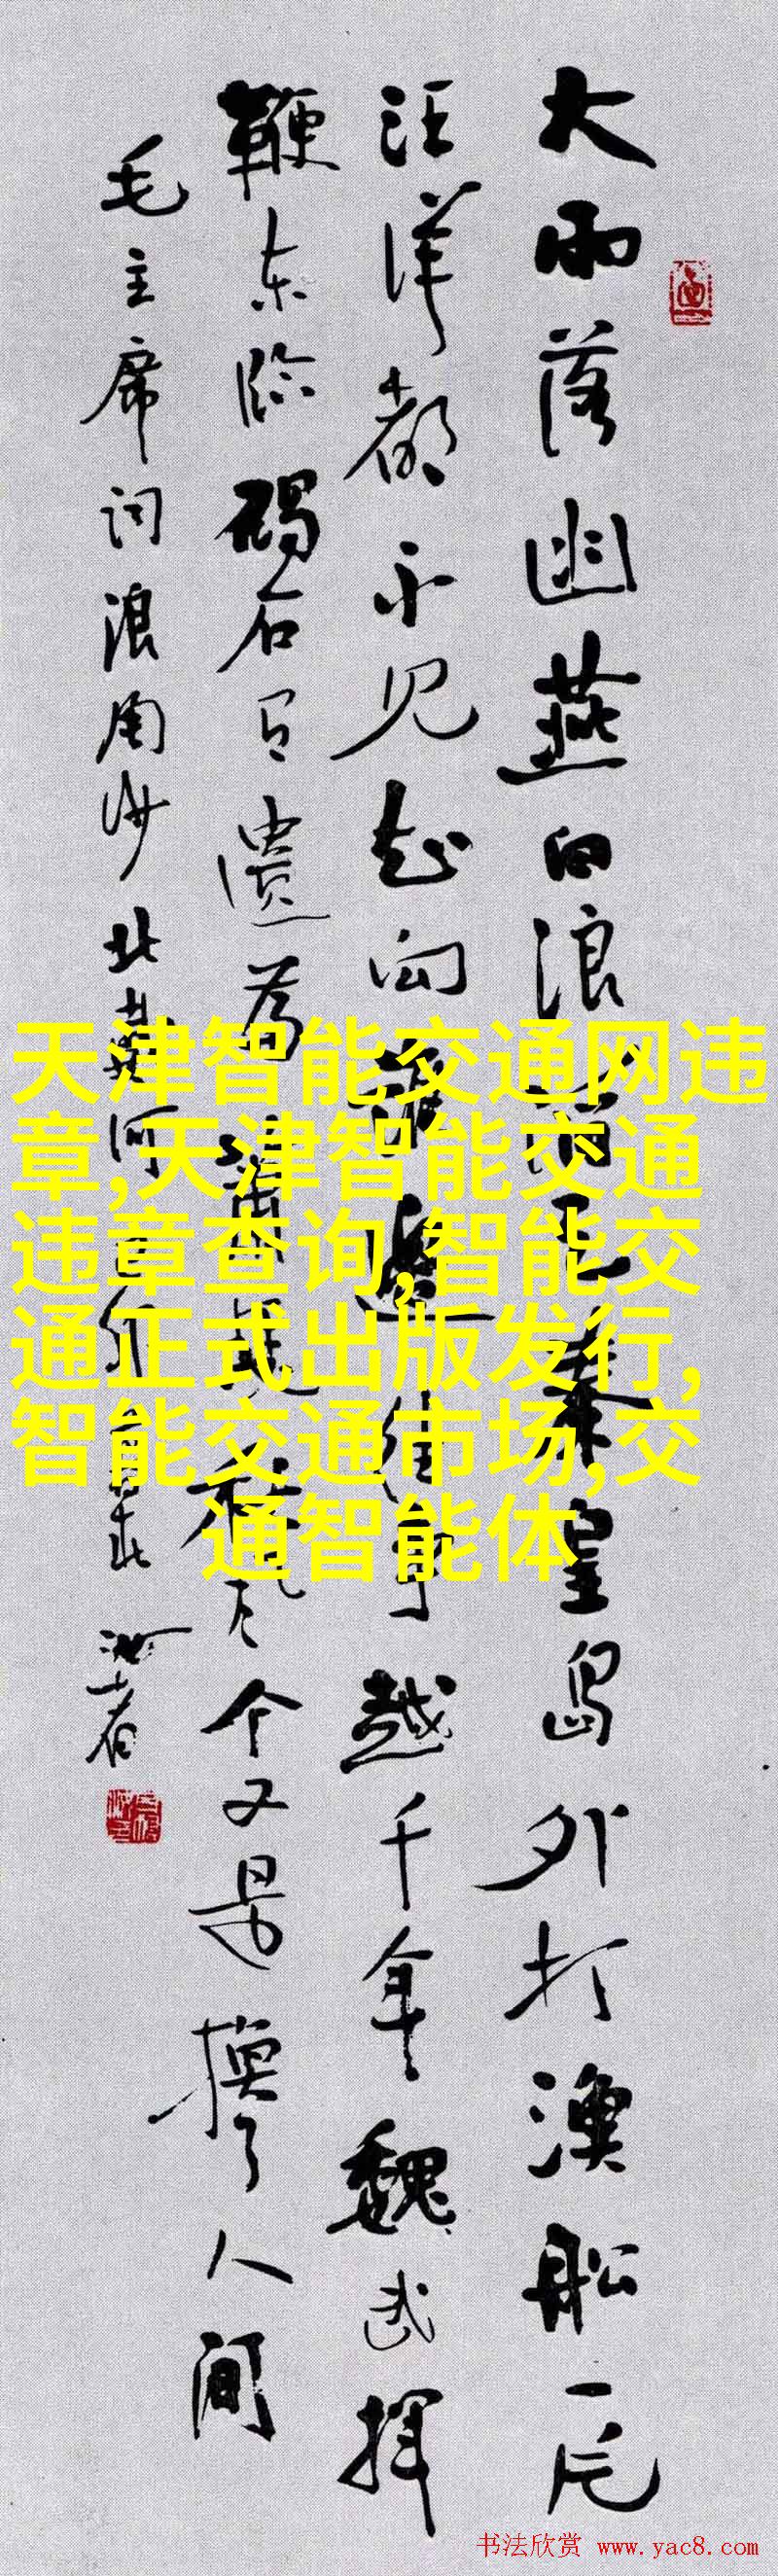 大雨落幽燕白浪滔天秦皇岛外打渔船一片
汪洋都不见知向谁边往事越千年魏武挥
鞭东临碣石有遗篇萧瑟秋风今又是换了人间
毛主席词浪淘沙北戴河
天津智能交通网违
章,天津智能交通
违章查询,智能交
通正式出版发行,
智能交通市场,交
通智能体
书法欣赏 www.yac8.com